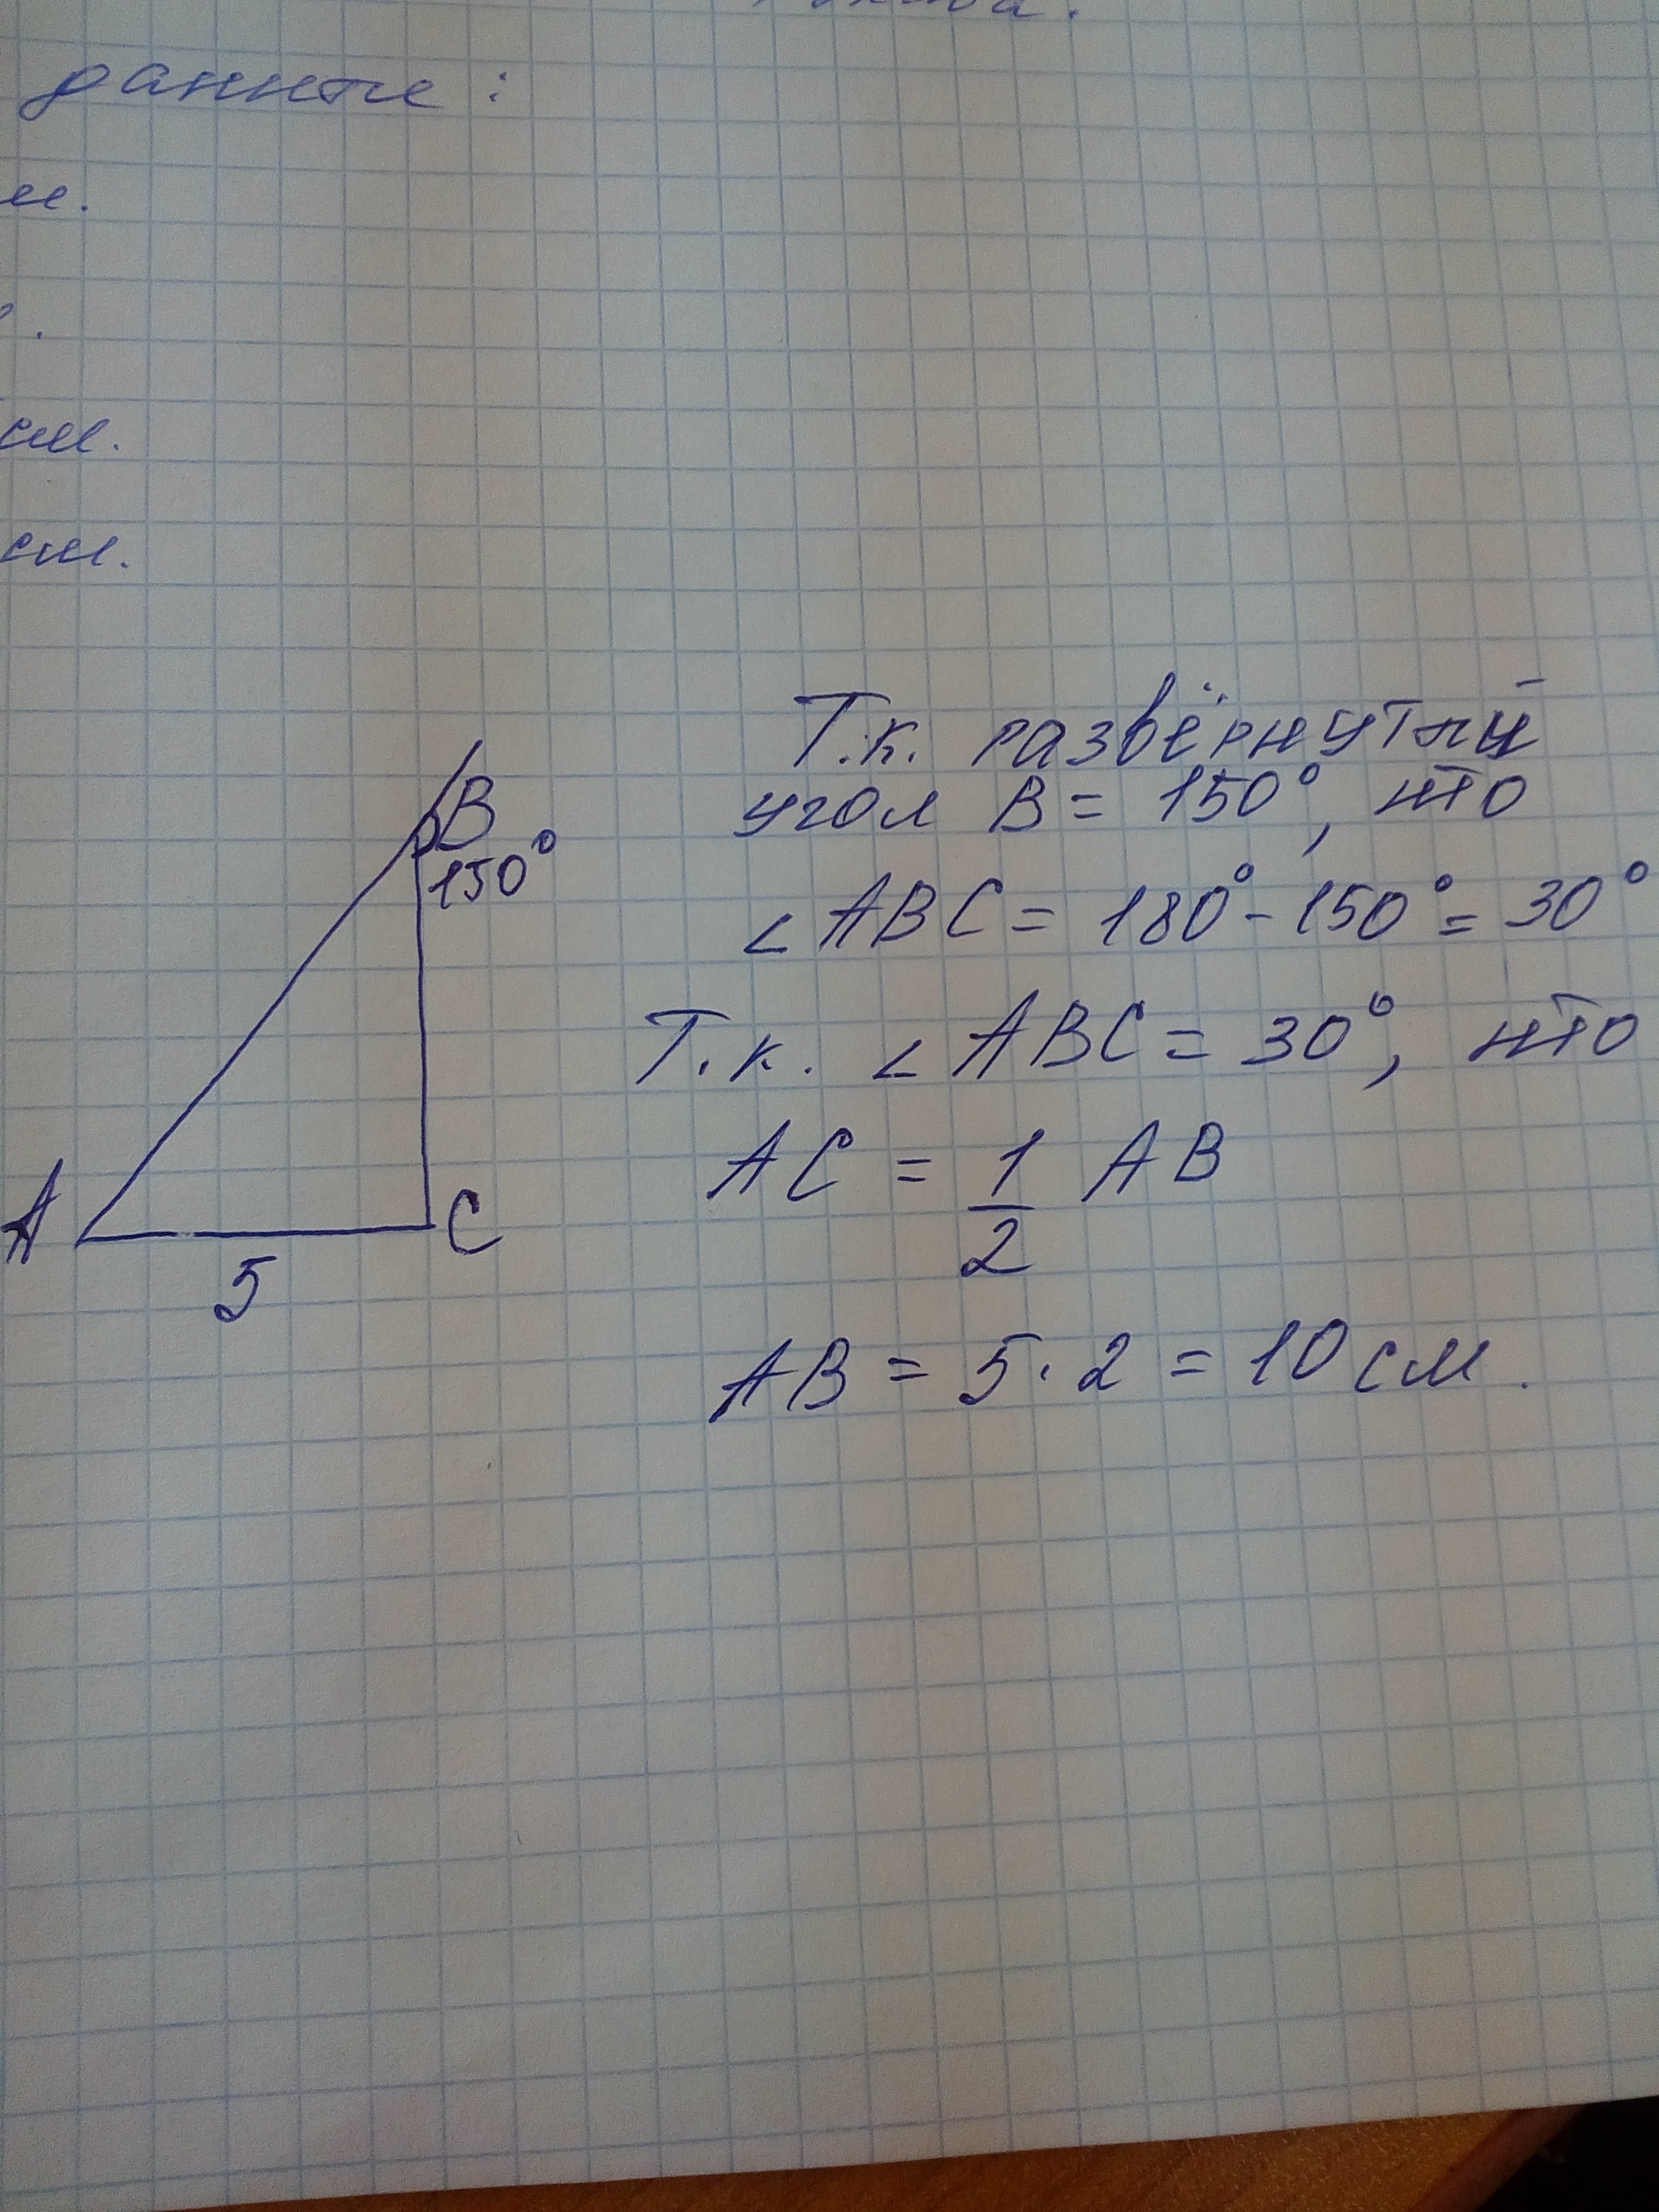 данные:
см.
см.
B
150°
A
C
5
Т.к. развёрнутый
угол B = 150°, что
∠ABC = 180° - 150° = 30°
Т.к. ∠ABC = 30°, что
AC = 1/2 AB
AB = 5·2 = 10 см.